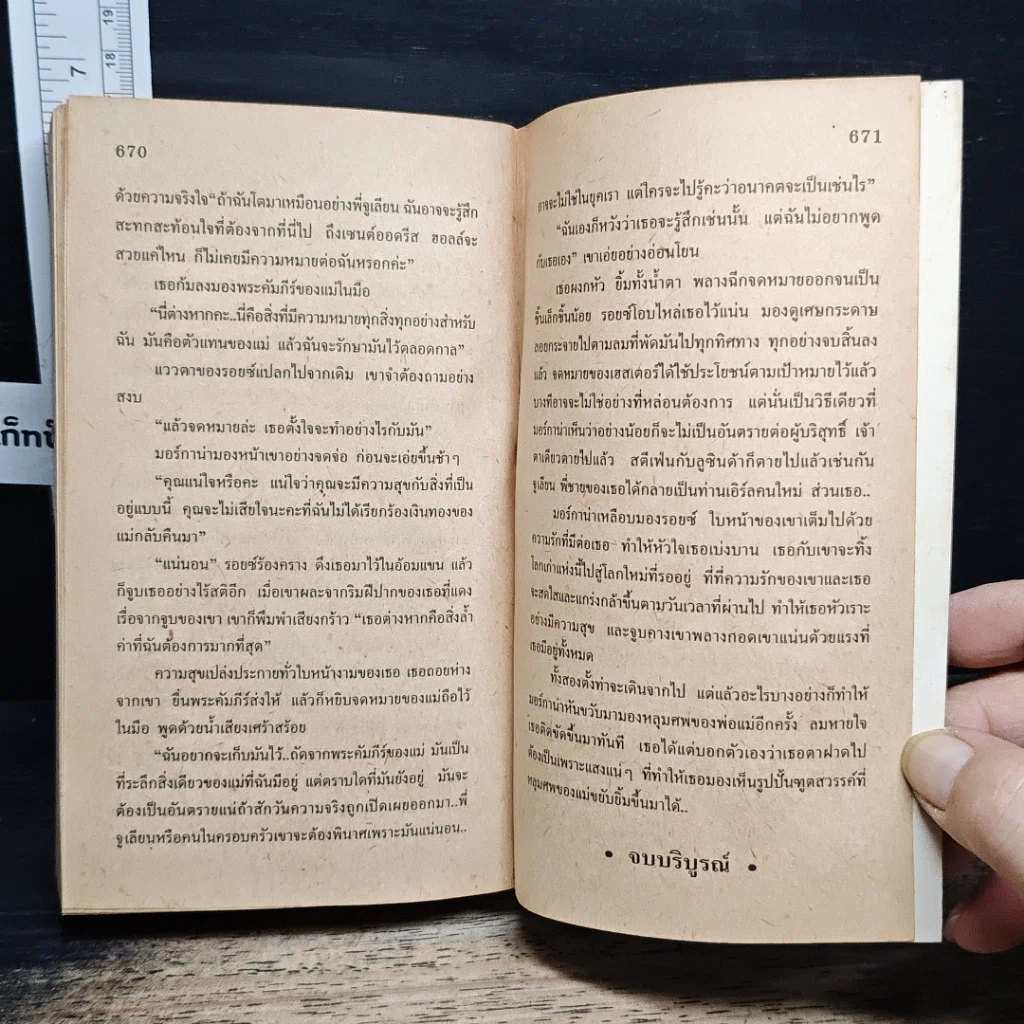 19
18
7
ก็ทบ์
670
ด้วยความจริงใจ“ถ้าฉันโตมาเหมือนอย่างพี่จูเลียน ฉันอาจจะรู้สึก
สะทกสะท้อนใจที่ต้องจากที่นี่ไป ถึงเซนต์ออดรีส ฮอลล์จะ
สวยแค่ไหน ก็ไม่เคยมีความหมายต่อฉันหรอกค่ะ”
เธอก้มลงมองพระคัมภีร์ของแม่ในมือ
“นี่ต่างหากคะ..นี่คือสิ่งที่มีความหมายทุกสิ่งทุกอย่างสำหรับ
ฉัน มันคือตัวแทนของแม่ แล้วฉันจะรักษามันไว้ตลอดกาล”
แววตาของรอยซ์แปลกไปจากเดิม เขาจำต้องถามอย่าง
สงบ
“แล้วจดหมายล่ะ เธอตั้งใจจะทำอย่างไรกับมัน”
มอร์กาน่ามองหน้าเขาอย่างจดจ่อ ก่อนจะเอ่ยขึ้นช้าๆ
“คุณแน่ใจหรือคะ แน่ใจว่าคุณจะมีความสุขกับสิ่งที่เป็น
อยู่แบบนี้ คุณจะไม่เสียใจนะคะที่ฉันไม่ได้เรียกร้องเงินทองของ
แม่กลับคืนมา”
“แน่นอน” รอยซ์ร้องคราง ดึงเธอมาไว้ในอ้อมแขน แล้ว
ก็จูบเธออย่างไร้สติอีก เมื่อเขาผละจากริมฝีปากของเธอที่แดง
เรื่อจากจูบของเขา เขาก็พึมพำเสียงกร้าว “เธอต่างหากคือสิ่งล้ำ
ค่าที่ฉันต้องการมากที่สุด”
ความสุขเปล่งประกายทั่วใบหน้างามของเธอ เธอถอยห่าง
จากเขา ยื่นพระคัมภีร์ส่งให้ แล้วก็หยิบจดหมายของแม่ถือไว้
ในมือ พูดด้วยน้ำเสียงเศร้าสร้อย
“ฉันอยากจะเก็บมันไว้..ถัดจากพระคัมภีร์ของแม่ มันเป็น
ที่ระลึกสิ่งเดียวของแม่ที่ฉันมีอยู่ แต่ตราบใดที่มันยังอยู่ มันจะ
ต้องเป็นอันตรายแน่ถ้าสักวันความจริงถูกเปิดเผยออกมา..พี่
จูเลียนหรือคนในครอบครัวเขาจะต้องพินาศเพราะมันแน่นอน..
671
อาจจะไม่ใช่ในยุคเรา แต่ใครจะไปรู้คะว่าอนาคตจะเป็นเช่นไร”
“ฉันเองก็หวังว่าเธอจะรู้สึกเช่นนั้น แต่ฉันไม่อยากพูด
กับเธอเอง” เขาเอ่ยอย่างอ่อนโยน
เธอผงกหัว ยิ้มทั้งน้ำตา พลางฉีกจดหมายออกจนเป็น
ชิ้นเล็กชิ้นน้อย รอยซ์โอบไหล่เธอไว้แน่น มองดูเศษกระดาษ
ลอยกระจายไปตามลมที่พัดมันไปทุกทิศทาง ทุกอย่างจบสิ้นลง
แล้ว จดหมายของเฮสเตอร์ได้ใช้ประโยชน์ตามเป้าหมายไว้แล้ว
บางทีอาจจะไม่ใช่อย่างที่หล่อนต้องการ แต่นั่นเป็นวิธีเดียวที่
มอร์กาน่าเห็นว่าอย่างน้อยก็จะไม่เป็นอันตรายต่อผู้บริสุทธิ์ เจ้า
ตาเดียวตายไปแล้ว สตีเฟ่นกับลูซินด้าก็ตายไปแล้วเช่นกัน
จูเลียน พี่ชายของเธอได้กลายเป็นท่านเอิร์ลคนใหม่ ส่วนเธอ..
มอร์กาน่าเหลือบมองรอยซ์ ใบหน้าของเขาเต็มไปด้วย
ความรักที่มีต่อเธอ ทำให้หัวใจเธอเบ่งบาน เธอกับเขาจะทิ้ง
โลกเก่าแห่งนี้ไปสู่โลกใหม่ที่รออยู่ ที่ที่ความรักของเขาและเธอ
จะสดใสและแกร่งกล้าขึ้นตามวันเวลาที่ผ่านไป ทำให้เธอหัวเราะ
อย่างมีความสุข และจูบคางเขาพลางกอดเขาแน่นด้วยแรงที่
เธอมีอยู่ทั้งหมด
ทั้งสองตั้งท่าจะเดินจากไป แต่แล้วอะไรบางอย่างก็ทำให้
มอร์กาน่าหันขวับมามองหลุมศพของพ่อแม่อีกครั้ง ลมหายใจ
เธอติดขัดขึ้นมาทันที เธอได้แต่บอกตัวเองว่าเธอตาฝาดไป
ต้องเป็นเพราะแสงแน่ๆ ที่ทำให้เธอมองเห็นรูปปั้นฑูตสวรรค์ที่
หลุมศพของแม่ขยับยิ้มขึ้นมาได้..
• จบบริบูรณ์ •